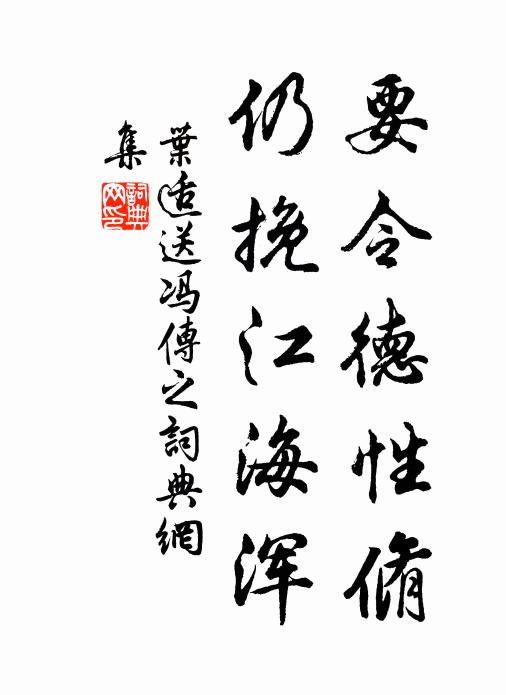 要令德性脩
仍挽江海浑
葉适送冯傳之詞典網
集
詞典
网印